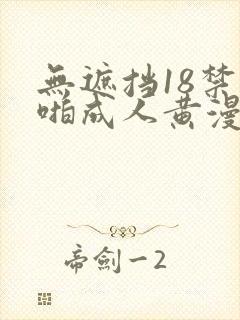 無遮挡18禁
啪成人黄漫
帝劍一2